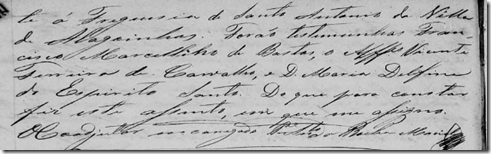 te á Freguesia de Santo Antonio da Villa
de Alagoinhas. Forão testimunhas Fran-
cisco Marcellino de Bastos, o Alfes Vicente
Ferreira de Carvalho, e D. Maria Delfina
do Espirito Santo. Do que para constar
fiz este assento, em que me assigno.
O Coadjutor encarregado